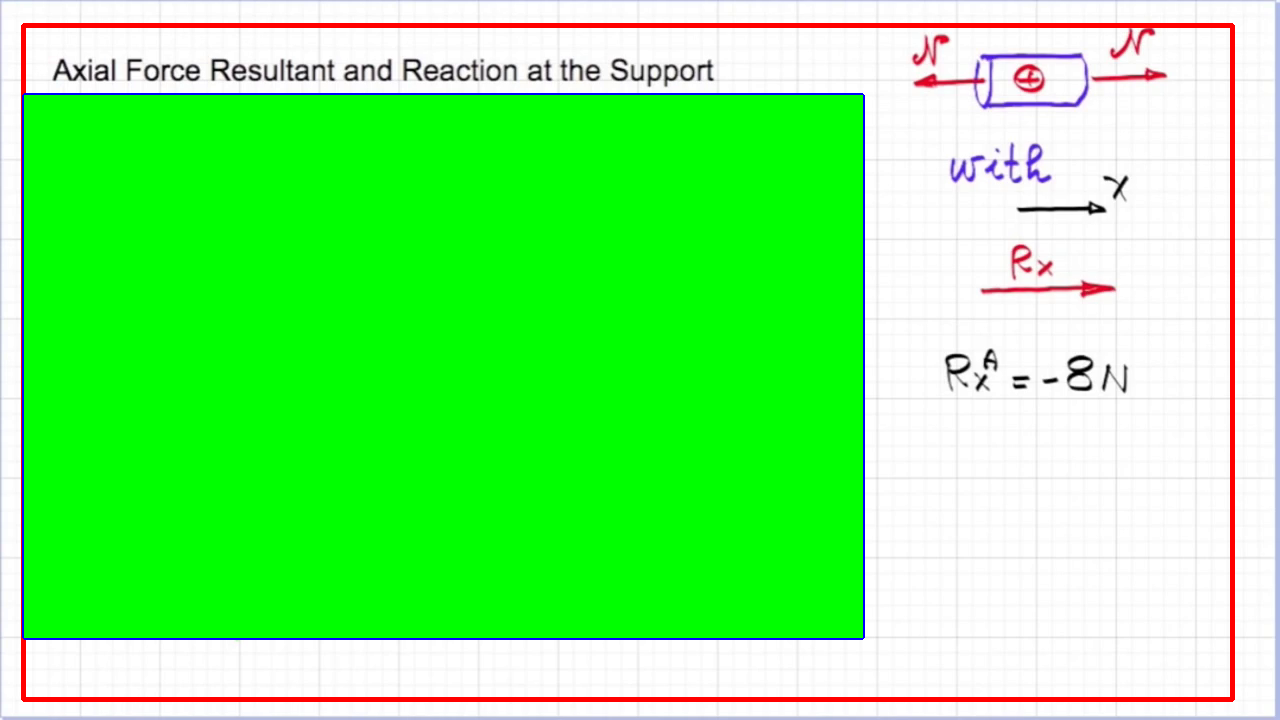 Axial Force Resultant and Reaction at the Support
N N
+
with
x
Rx
Rx^A = -8N